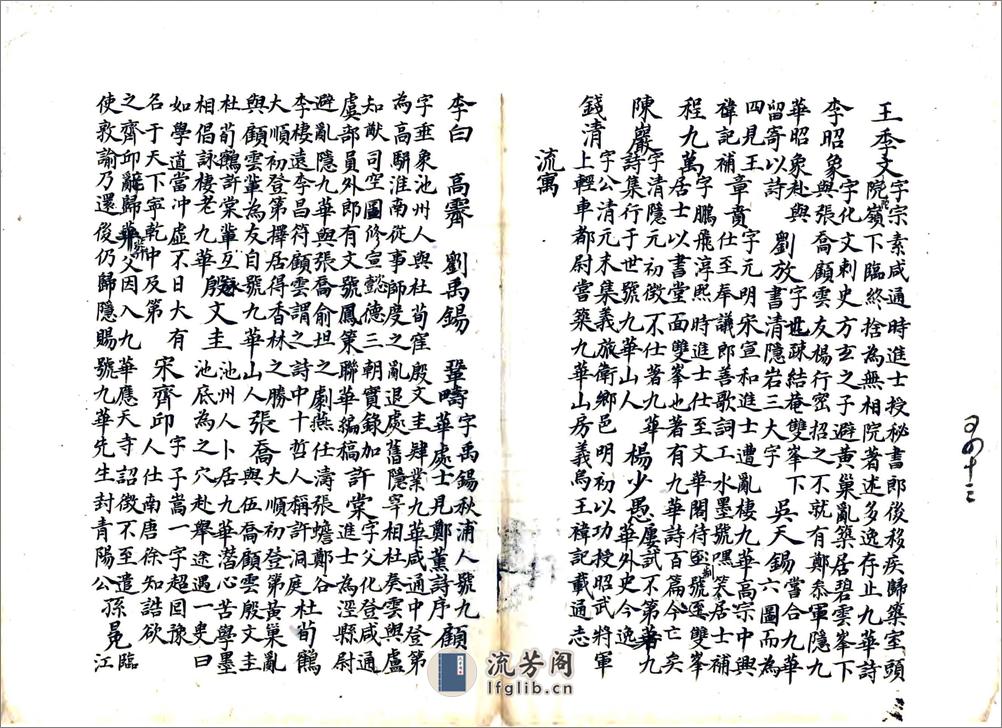 王季文 字宗素咸通時進士授秘書郎後移疾歸築室頭
院嶺下臨終捨為無相院著述多逸存止九華詩
李昭象 字化文刺史方玄之子避黃巢亂築居碧雲峯下
與張喬顧雲友楊行密招之不就有鄭泰軍隱九
華昭象赴與
留寄以詩 劉放 字世疎結菴雙峯下
書清隱岩三大字 吳天錫 嘗合九華
六圖而為
四見王
禕記補 章賁 字元明宋宣和進士遭亂棲九華高宗中興
仕至奉議郎善歌詞工水墨號嘿居士補
程九萬 字鵬飛淳熙時進士仕至文華閣待制號雙峯
居士以書堂面雙峯也著有九華詩百篇今亡矣
陳巖 字清隱元初徵不仕著九華
詩集行于世號九華山人 楊少愚 屢試不第九
華外史今逸
錢清 字公清元末集義旅衛鄉邑明初以功授昭武將軍
上輕車都尉嘗築九華山房義烏王禕記載通志
流寓
李白 高霽 劉禹錫 鞏疇 字禹錫秋浦人號九
華處士見鄭薰詩序 顧
字垂象池州人與杜荀寉殷文圭肄業九華咸通中登第
為高駢淮南從事師度之亂退處舊隱宰相杜葵雲與盧
知猷司空圖修宣懿德三朝實錄加
虞部員外郎有文號鳳策聯華編稿 許棠 字父化登咸通
進士為涇縣尉
避亂隱九華與張喬俞坦之劇燕任濤張蟾鄭谷
李棲遠李昌符顧雲謂之詩中十哲人稱許洞庭 杜荀鶴
大順初登第擇居得香林之勝
與顧雲輩為友自號九華山人 張喬 大順初登第黃巢亂
與伍喬顧雲殷文圭
杜荀鶴許棠輩互
相倡詠棲老九華 殷文圭 池州人卜居九華潛心苦學墨
池底為之穴赴舉途遇一叟曰
如學道當沖虛不日大有
名于天下寧乾中及第 宋齊邱 字子嵩一字超回豫
人仕南唐徐知誥欲
之齊邱辭歸葬父因入九華應天寺詔徵不至遣
使敦諭乃還後仍歸隱賜號九華先生封青陽公 孫晃 臨
江
流芳阁
lfglib.cn